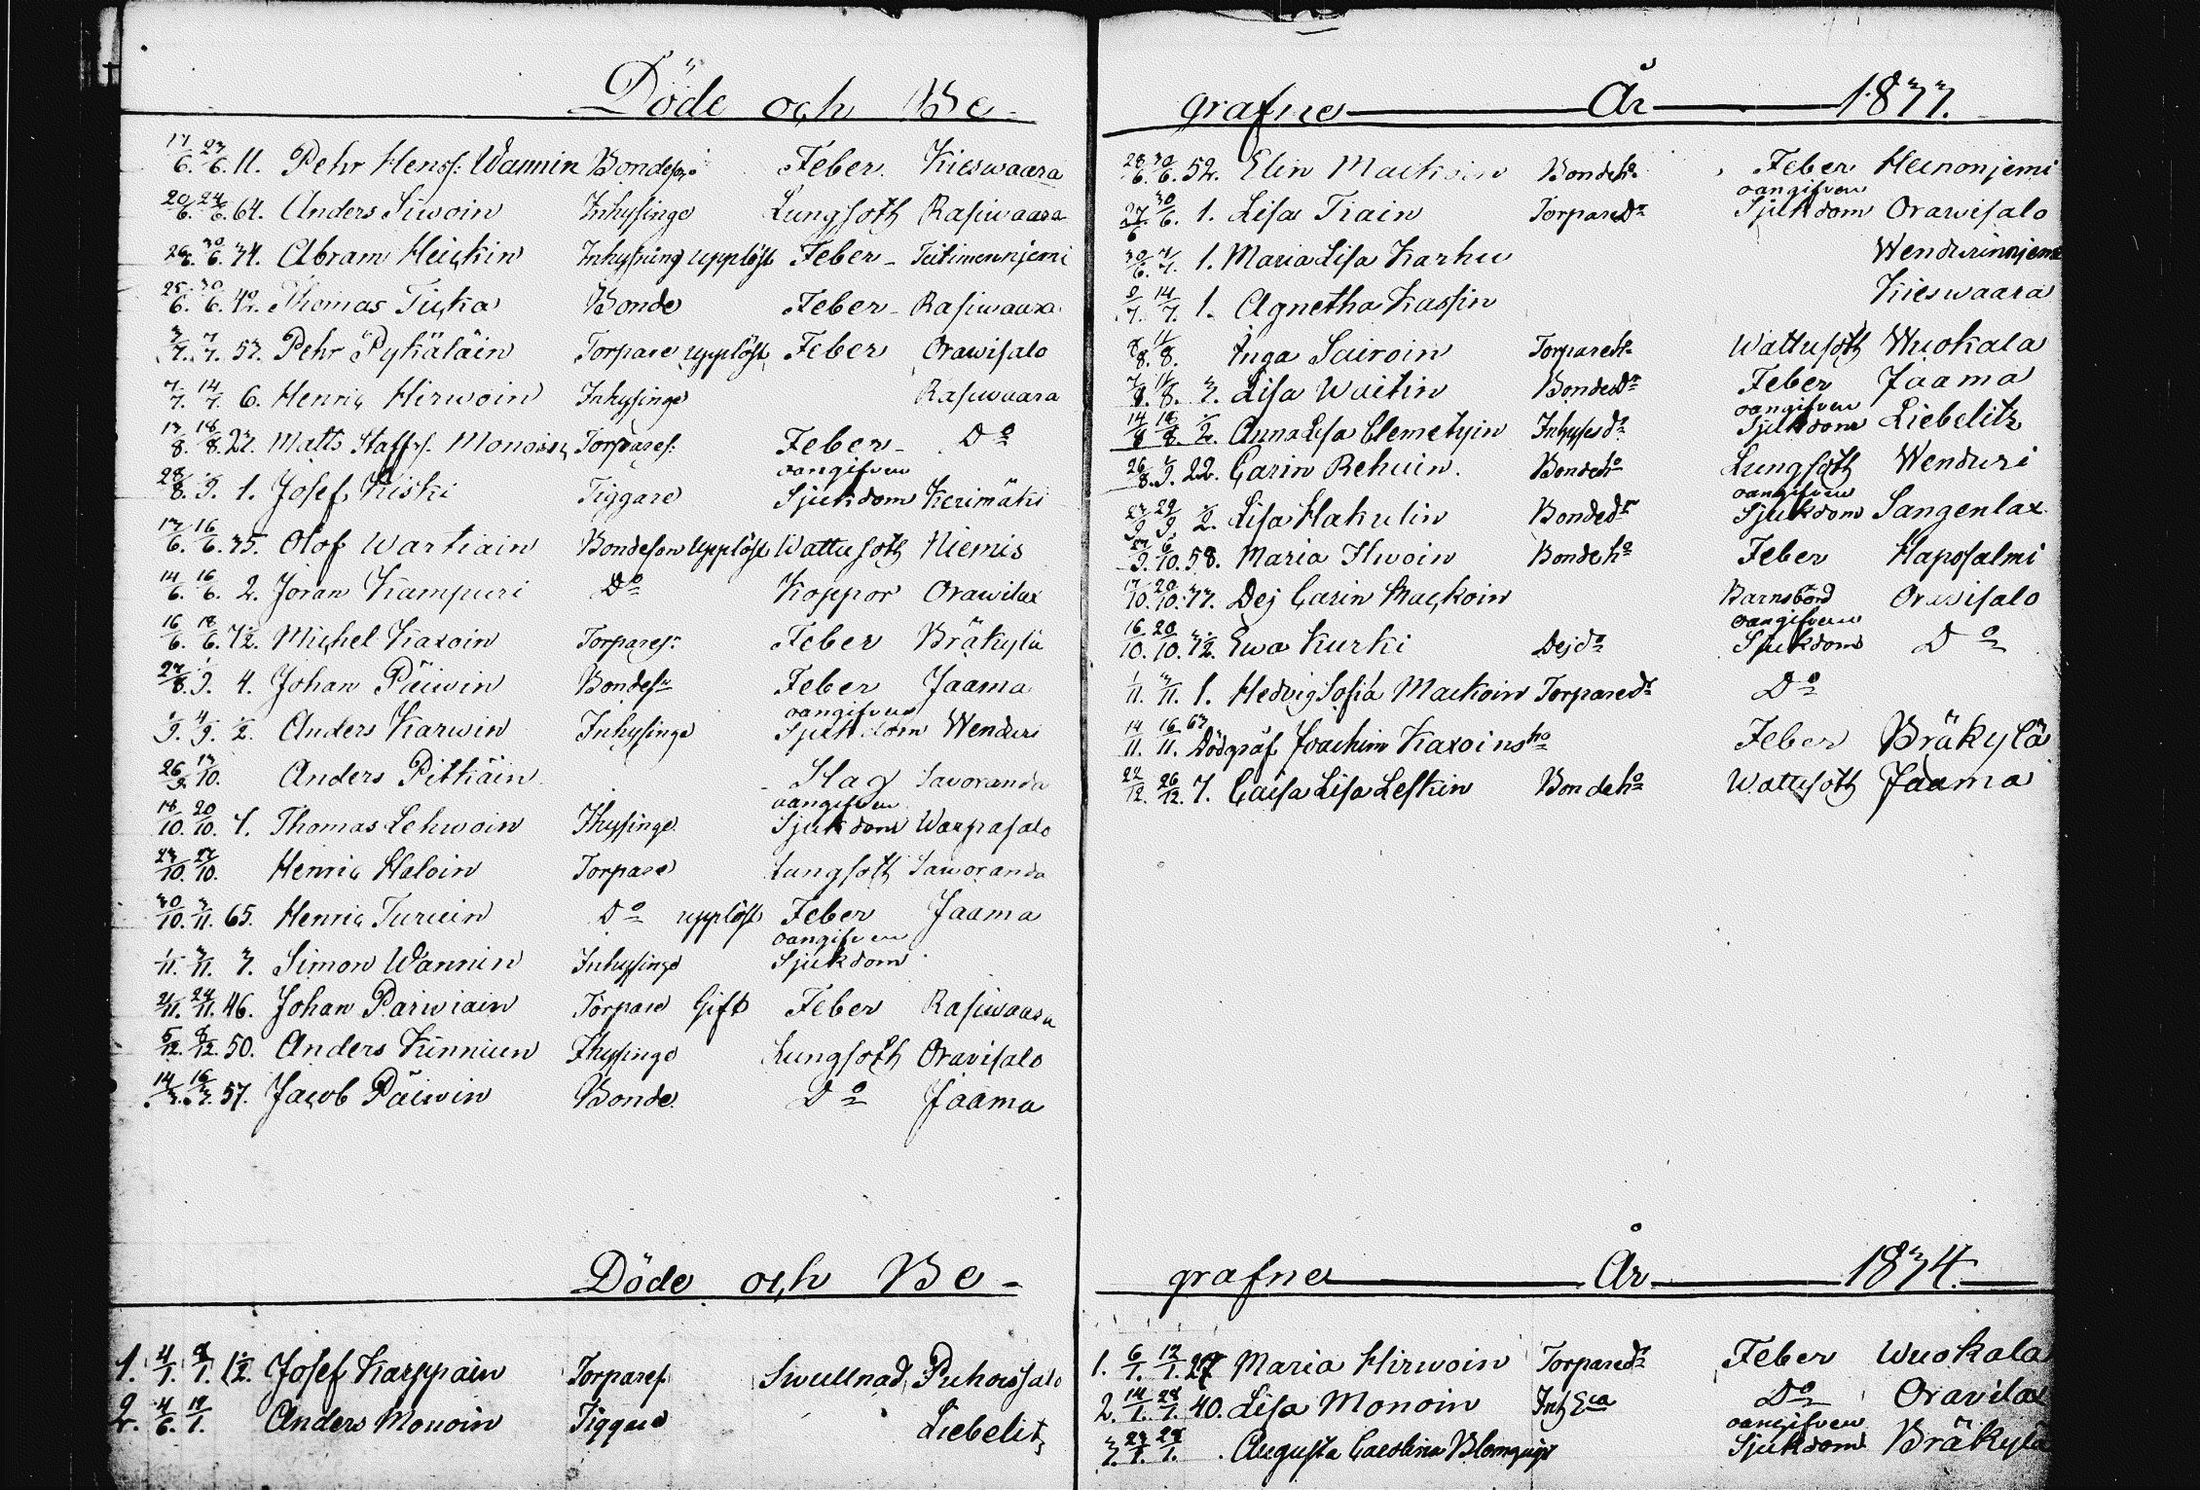 Döde och Be-
17/6. 23/6. 11. Pehr Henss: Wannin Bondeson Feber. Kieswaara
20/6. 24/6. 64. Anders Siwoin Inhysinge Lungsoth Rasiwaara
30/6. 34. Abram Heickin Inhysing upplöst Feber - Teitinennjemi
25/6. 30/6. 42. Thomas Ticka Bonde Feber - Rasiwaara.
3/7. 7/7. 53. Pehr Pykäläin Torpare upplöst Feber Orawisalo
7/7. 14/7. 6. Henric Hirwoin Inhysinge Rasiwaara
13/8. 18/8. Matts Staffs. Monoin Torpares: Feber - Do
28/8. 1/9. 1. Josef Kiski Tiggare oangifven Sjukdom Kerimäki
13/6. 16/6. 35. Olof Wartiain Bondeson Upplöst Wattusoth Niemis
14/6. 16/6. 2. Jöran Kampuri Do Koppor Orawilax
16/6. 18/6. 1/2. Michel Kaxoin Torpares: Feber Bräkylä
27/8. 1/9. 4. Johan Päiwin Bondesn Feber Jaama
1/9. 4/9. 1/2. Anders Karwin Inhysinge oangifven Sjukdom Wenduri
26/9. 13/10. Anders Pitkäin Slag Savoranda
18/10. 20/10. Thomas Lehwoin Ihysinge oangifven Sjukdom Warpasalo
23/10. 27/10. Henric Haloin Torpare Lungsoth Saworanda
30/10. 3/11. 65. Henric Turuin Do upplöst Feber Jaama
1/11. 3/11. 3. Simon Wannin Inhysinge oangifven Sjukdom
21/11. 24/11. 46. Johan Parwiain Torpare Gift Feber Rasiwaara
5/12. 8/12. 50. Anders Kinniun Ihysinge Lungsoth Oravisalo
14/3. 16/3. 57. Jacob Päiwin Bonde. Do Jaama
Döde och Be-
1. 4/1. 8/1. 1 1/2. Josef Karppain Torpares. Swullnad Puhoissalo
2. 4/6. 12/1. Anders Monoin Tiggare Liebelits
grafne År 1833.
28/6. 30/6. 52. Elin Mackoin Bondeho Feber Heinonjemi
27/6 30/6. 1. Lisa Tiain Torparedr oangifven Sjukdom Orawisalo
30/6. 7/7. 1. Maria Lisa Karhu Wendurinnjemi
9/7. 14/7. 1. Agnetha Kassin Kieswaara
8/8. 11/8. Inga Sairoin Torpareho Wattusoth Wuokala
7/8. 11/8. 3. Lisa Waitin Bondedr Feber Jaama
14/8 18/8. 1/2. Anna Lisa Clemetyin Inhysdr oangifven Sjukdom Liebelitz
26/8. 1/9. 22. Carin Rehuin. Bondeho Lungsoth Wenduri
27/9 29/9 1/2. Lisa Hakulin Bondedr oangifven Sjukdom Sangenlax.
27/9. 6/10. 58. Maria Ihwoin Bondeho Feber Haposalmi
17/10. 20/10. 33. Dej Carin Mackoin Barnsbörd Orawisalo
16/10. 20/10. 1/2. Ewa Kurki Dejdr oangifven Sjukdom Do
1/11. 3/11. 1. Hedvig Sofia Mackoin Torparedr Do
14/11. 16/11. 63 Dödgräf Joachim Kaxoins ho Feber Bräkylä
22/12. 26/12. Caisa Lisa Leskin Bondeho Wattusoth Jaama
grafne År 1834.
1. 6/1. 12/1. Maria Hirwoin Torparedr Feber Wuokala
2. 14/1. 28/1. 40. Lisa Monoin Inh Eca Do Oravilax
3. 23/1. 28/1. Augusta Carolina Blomquist oangifven Sjukdom Bräkylä